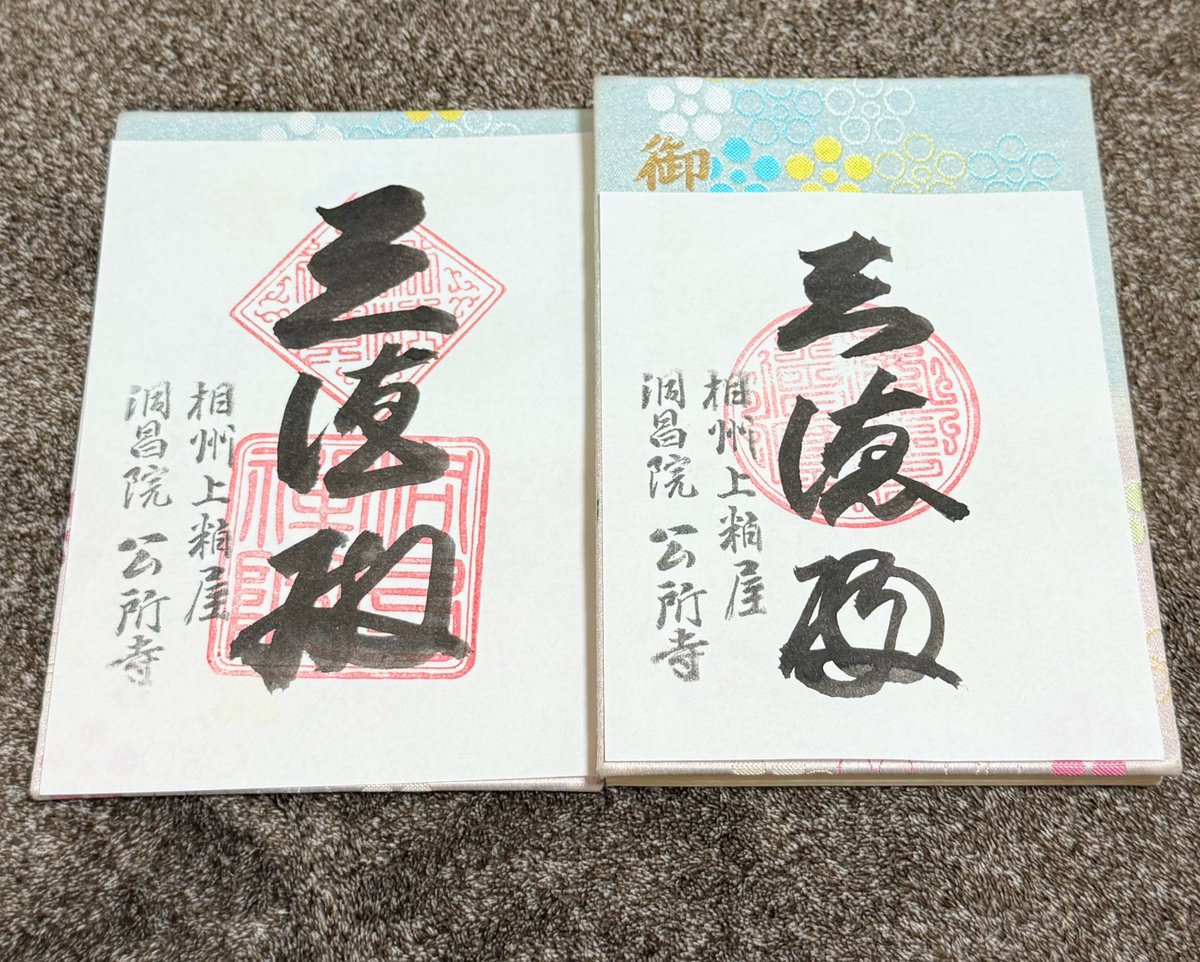 三徳殿
相州上粕屋
洞昌院 公所寺
御
三徳殿
相州上粕屋
洞昌院 公所寺